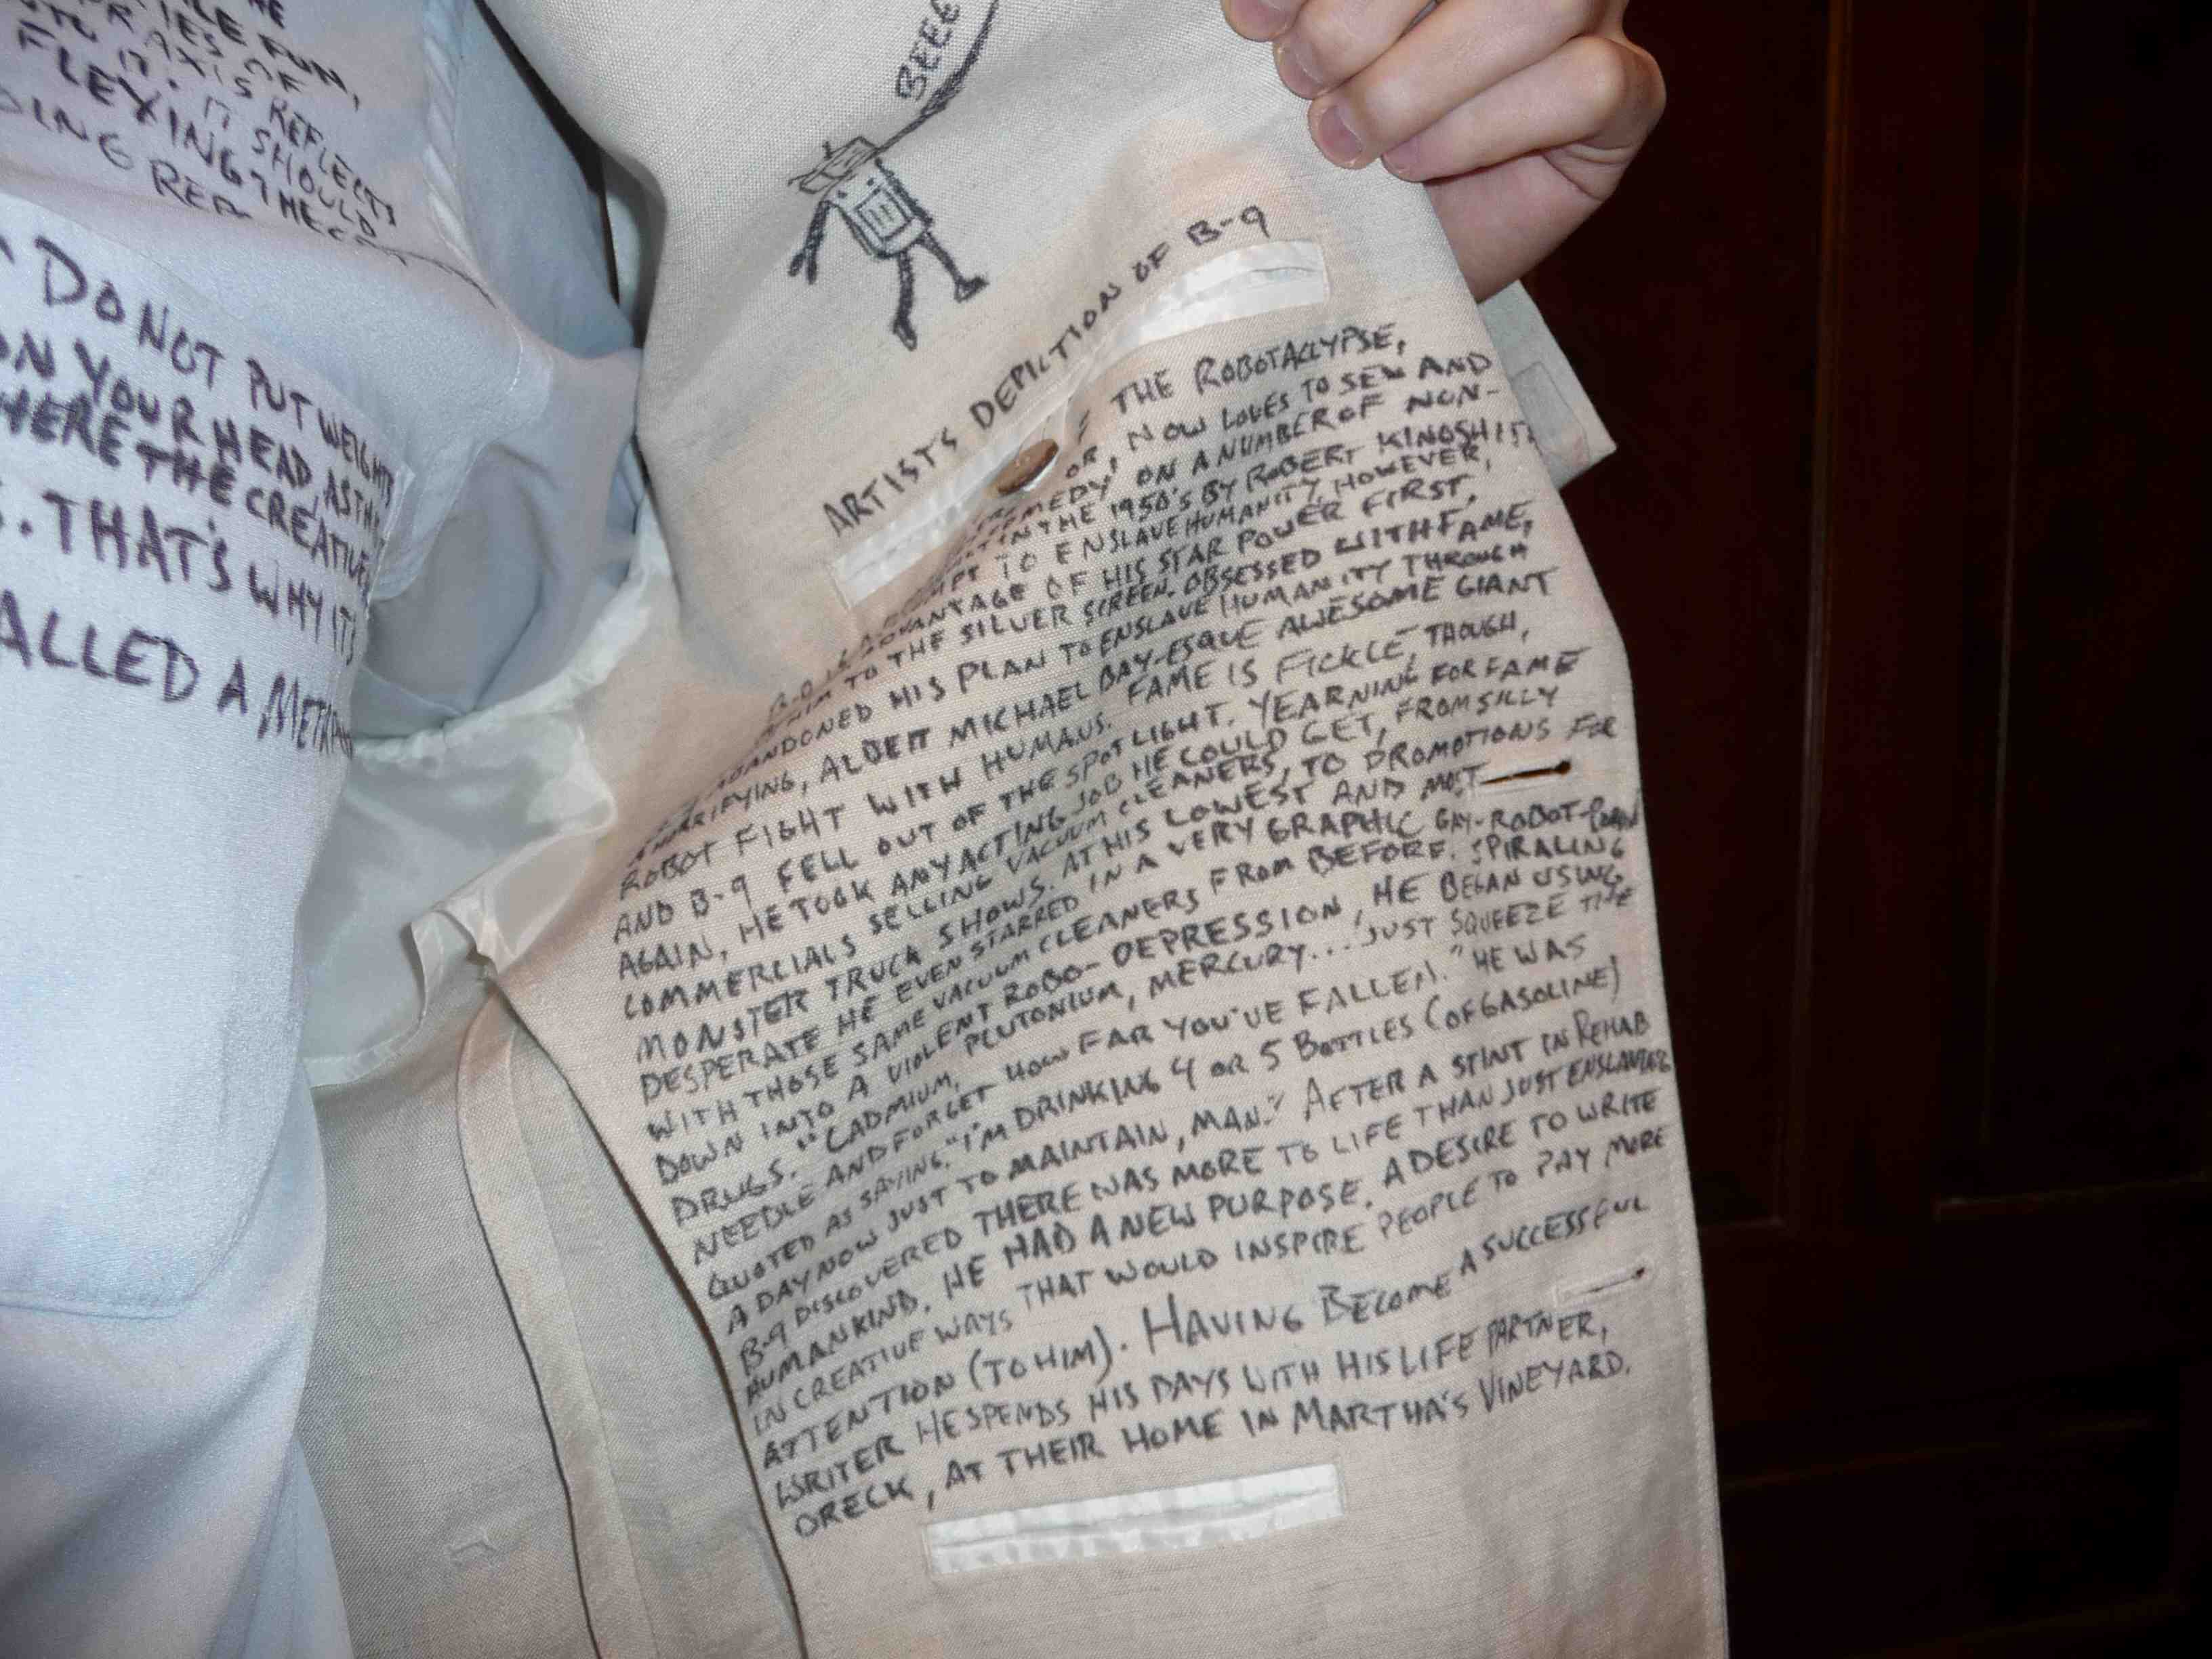 THE
FUN,
AXIS OF
IT. IT REFLECTS
FLEXING. THE
SHOULD
DO NOT PUT WEIGHTS
ON YOUR HEAD, AS THAT
HERE THE CREATIVE
. THAT'S WHY IT'S
ALLED A
BEEE
ARTISTS DEPICTION OF B-9
THE ROBOTACLYPSE,
OR, NOW LOVES TO SEW AND
ON A NUMBER OF NON-
IN THE 1950'S BY ROBERT KINOSHITA
TO ENSLAVE HUMANITY, HOWEVER,
ADVANTAGE OF HIS STAR POWER FIRST,
HIM TO THE SILVER SCREEN. OBSESSED WITH FAME,
ABANDONED HIS PLAN TO ENSLAVE HUMANITY THROUGH
HORRIFYING, ALBEIT MICHAEL BAY-ESQUE AWESOME GIANT
ROBOT FIGHT WITH HUMANS. FAME IS FICKLE, THOUGH,
AND B-9 FELL OUT OF THE SPOTLIGHT. YEARNING FOR FAME
AGAIN, HE TOOK ANY ACTING JOB HE COULD GET, FROM SILLY
COMMERCIALS SELLING VACUUM CLEANERS, TO PROMOTIONS FOR
MONSTER TRUCK SHOWS. AT HIS LOWEST AND MOST
DESPERATE HE EVEN STARRED IN A VERY GRAPHIC GAY-ROBOT-PORN
WITH THOSE SAME VACUUM CLEANERS FROM BEFORE. SPIRALING
DOWN INTO A VIOLENT ROBO-DEPRESSION, HE BEGAN USING
DRUGS. "CADMIUM, PLUTONIUM, MERCURY... JUST SQUEEZE THE
NEEDLE AND FORGET HOW FAR YOU'VE FALLEN." HE WAS
QUOTED AS SAYING. "I'M DRINKING 4 OR 5 BOTTLES (OF GASOLINE)
A DAY NOW JUST TO MAINTAIN, MAN." AFTER A STINT IN REHAB
B-9 DISCOVERED THERE WAS MORE TO LIFE THAN JUST ENSLAVING
HUMANKIND. HE HAD A NEW PURPOSE. A DESIRE TO WRITE
IN CREATIVE WAYS THAT WOULD INSPIRE PEOPLE TO PAY MORE
ATTENTION (TO HIM). HAVING BECOME A SUCCESSFUL
WRITER HE SPENDS HIS DAYS WITH HIS LIFE PARTNER,
ORECK, AT THEIR HOME IN MARTHA'S VINEYARD.